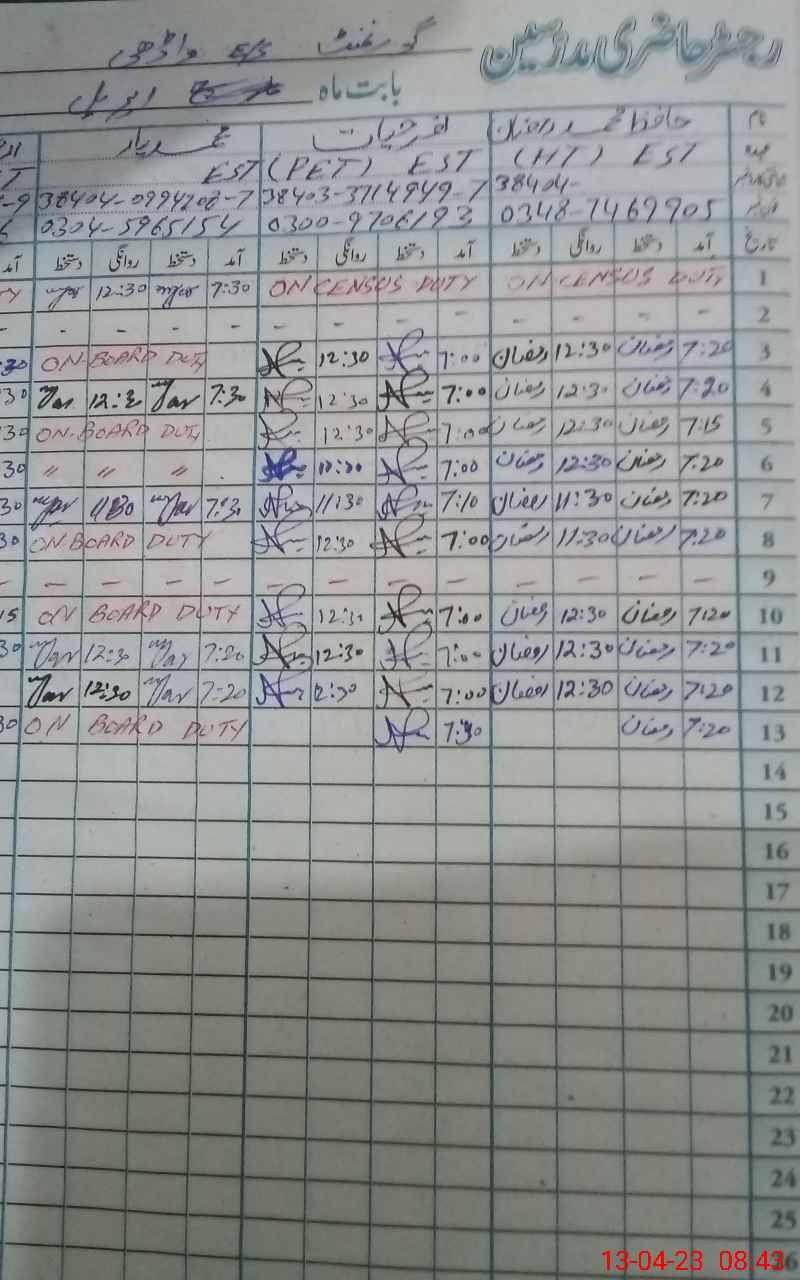 رجسٹر حاضری مدرسین
گورنمنٹ E/S
بابت ماہ اپریل
نام حافظ محمد رمضان
عہدہ (HT) EST (PET) EST EST
38404- 38403-3714949-7 38404-0994202-7
0348-7469905 0300-9706193 0304-5965154
تاریخ آمد دستخط روانگی دستخط آمد دستخط روانگی دستخط آمد دستخط روانگی دستخط
1 ON CENSUS DUTY ON CENSUS DUTY 7:30 12:30
2 - - - - - - - - - - - -
3 7:20 رمضان 12:30 رمضان 7:00 12:30 ON BOARD DUTY
4 7:20 رمضان 12:30 رمضان 7:00 12:30 7:30 Yar 12:3 Yar
5 7:15 رمضان 12:30 رمضان 7:00 12:30 ON BOARD DUTY
6 7:20 رمضان 12:30 رمضان 7:00 〃 〃 〃
7 7:20 رمضان 11:30 رمضان 7:10 11:30 7:30 Yar 11:30 Yar
8 7:20 رمضان 11:30 رمضان 7:00 12:30 ON BOARD DUTY
9 - - - - - - - - - - - -
10 7:20 رمضان 12:30 رمضان 7:00 12:30 ON BOARD DUTY
11 7:20 رمضان 12:30 رمضان 7:00 12:30 7:20 Yar 12:30 Yar
12 7:20 رمضان 12:30 رمضان 7:00 12:30 7:20 Yar 12:30 Yar
13 7:20 رمضان 7:30 ON BOARD DUTY
14
15
16
17
18
19
20
21
22
23
24
25
26
13-04-23 08:43